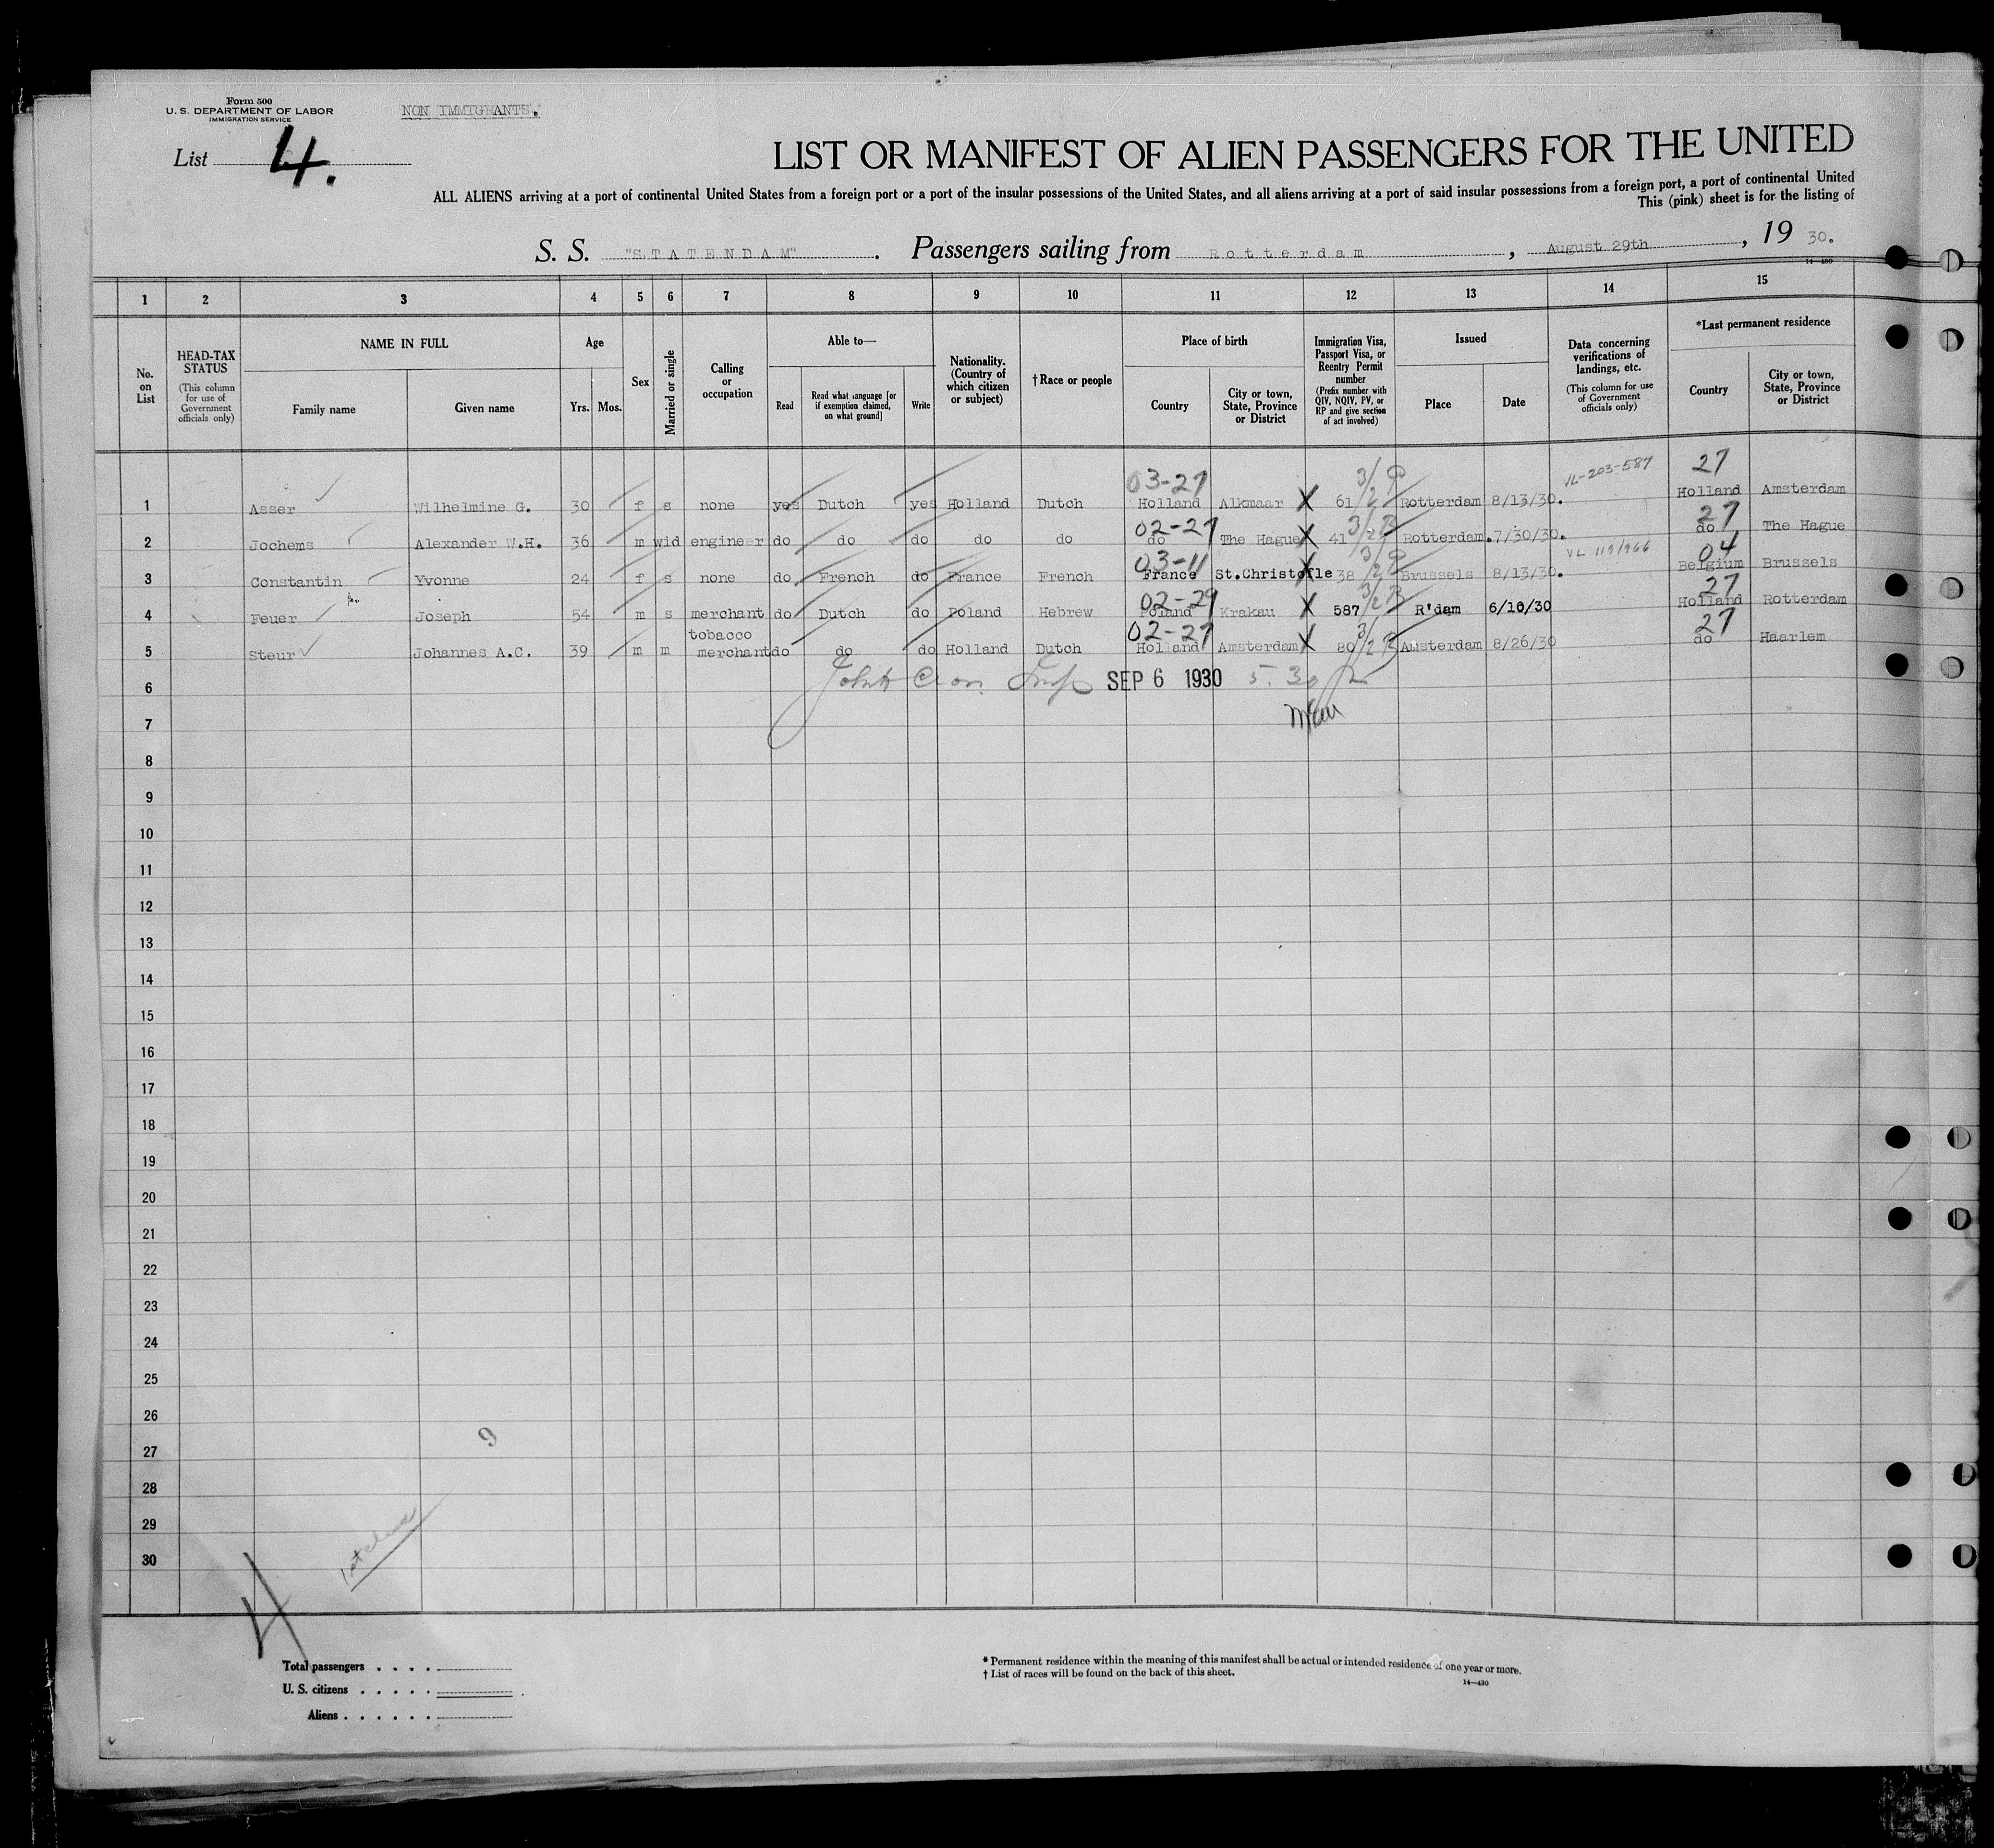 Form 500
U. S. DEPARTMENT OF LABOR
IMMIGRATION SERVICE
NON IMMIGRANTS.
List 4.
LIST OR MANIFEST OF ALIEN PASSENGERS FOR THE UNITED
ALL ALIENS arriving at a port of continental United States from a foreign port or a port of the insular possessions of the United States, and all aliens arriving at a port of said insular possessions from a foreign port, a port of continental United
This (pink) sheet is for the listing of
S. S. "STATENDAM". Passengers sailing from Rotterdam, August 29th, 19 30.
14—430
1 2 3 4 5 6 7 8 9 10 11 12 13 14 15
No. on List
HEAD-TAX STATUS (This column for use of Government officials only)
NAME IN FULL Family name Given name
Age Yrs. Mos.
Sex
Married or single
Calling or occupation
Able to— Read Read what language [or if exemption claimed, on what ground] Write
Nationality. (Country of which citizen or subject)
† Race or people
Place of birth Country City or town, State, Province or District
Immigration Visa, Passport Visa, or Reentry Permit number (Prefix number with QIV, NQIV, PV, or RP and give section of act involved)
Issued Place Date
Data concerning verifications of landings, etc. (This column for use of Government officials only)
*Last permanent residence Country City or town, State, Province or District
03-27 3/2 VL-203-587 27
1 Asser Wilhelmine G. 30 f s none yes Dutch yes Holland Dutch Holland Alkmaar X 61 Rotterdam 8/13/30. Holland Amsterdam
02-27 3/2 B 27
2 Jochems Alexander W.H. 36 m wid engineer do do do do do do The Hague X 41 Rotterdam. 7/30/30. do The Hague
03-11 3/2 VL 119/966 04
3 Constantin Yvonne 24 f s none do French do France French France St.Christofle X 38 Brussels 8/13/30. Belgium Brussels
02-29 3/2 B 27
4 Feuer Joseph 54 m s merchant do Dutch do Poland Hebrew Poland Krakau X 587 R'dam 6/10/30 Holland Rotterdam
02-27 3/2 B 27
5 Steur Johannes A.C. 39 m m tobacco merchant do do do Holland Dutch Holland Amsterdam X 80 Amsterdam 8/26/30 do Haarlem
6 SEP 6 1930 5.30
7
8
9
10
11
12
13
14
15
16
17
18
19
20
21
22
23
24
25
26
27
9
28
29
30
4
Total passengers . . . .
U. S. citizens . . . . .
Aliens . . . . . .
* Permanent residence within the meaning of this manifest shall be actual or intended residence of one year or more.
† List of races will be found on the back of this sheet.
14—430